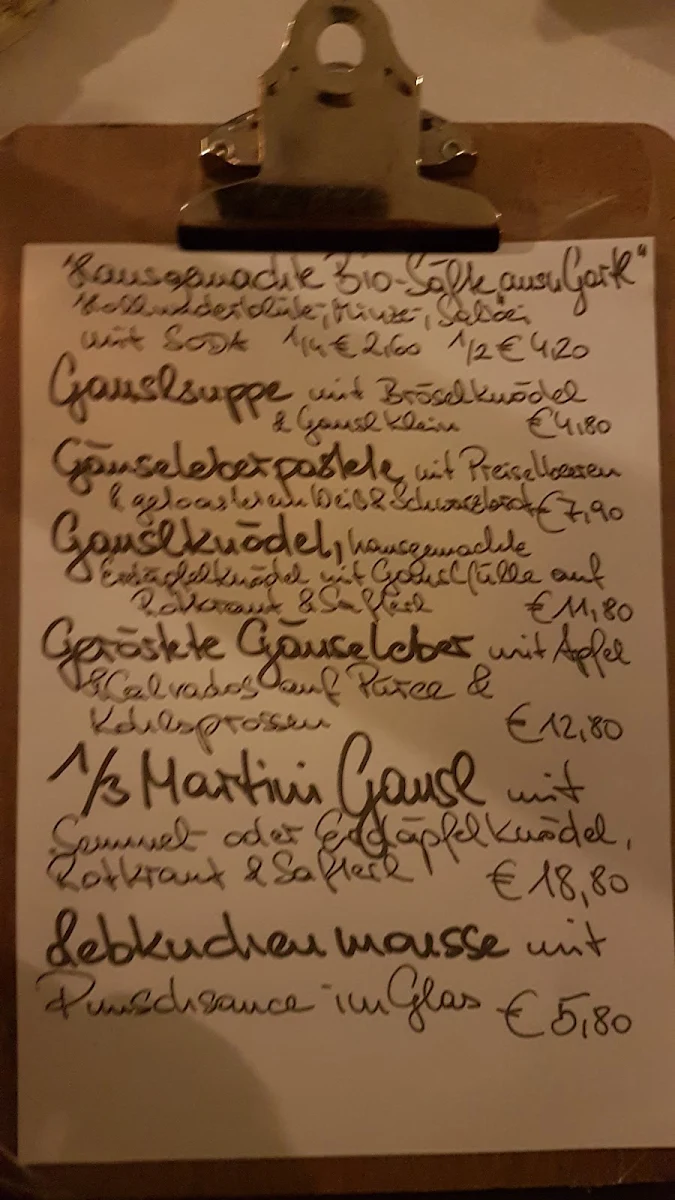 "Hausgemachte Bio-Säfte aus'n Gartl"
Hollunderblüte, Minze, Salbei
mit SODA 1/4 € 2,60 1/2 € 4,20
Ganslsuppe mit Bröselknödel
& Gansl Klein €4,80
Gänseleberpastete mit Preiselbeeren
& getoastetem Weiß & Schwarzbrot €7,90
Ganslknödel, hausgemachte
Erdäpfelknödel mit Ganslfülle auf
Rotkraut & Safterl €11,80
Geröstete Gänseleber mit Apfel
& Calvados auf Püree &
Kohlsprossen €12,80
1/3 Martini Gansl mit
Semmel- oder Erdäpfelknödel,
Rotkraut & Safterl €18,80
Lebkuchenmousse mit
Punschsauce im Glas €5,80